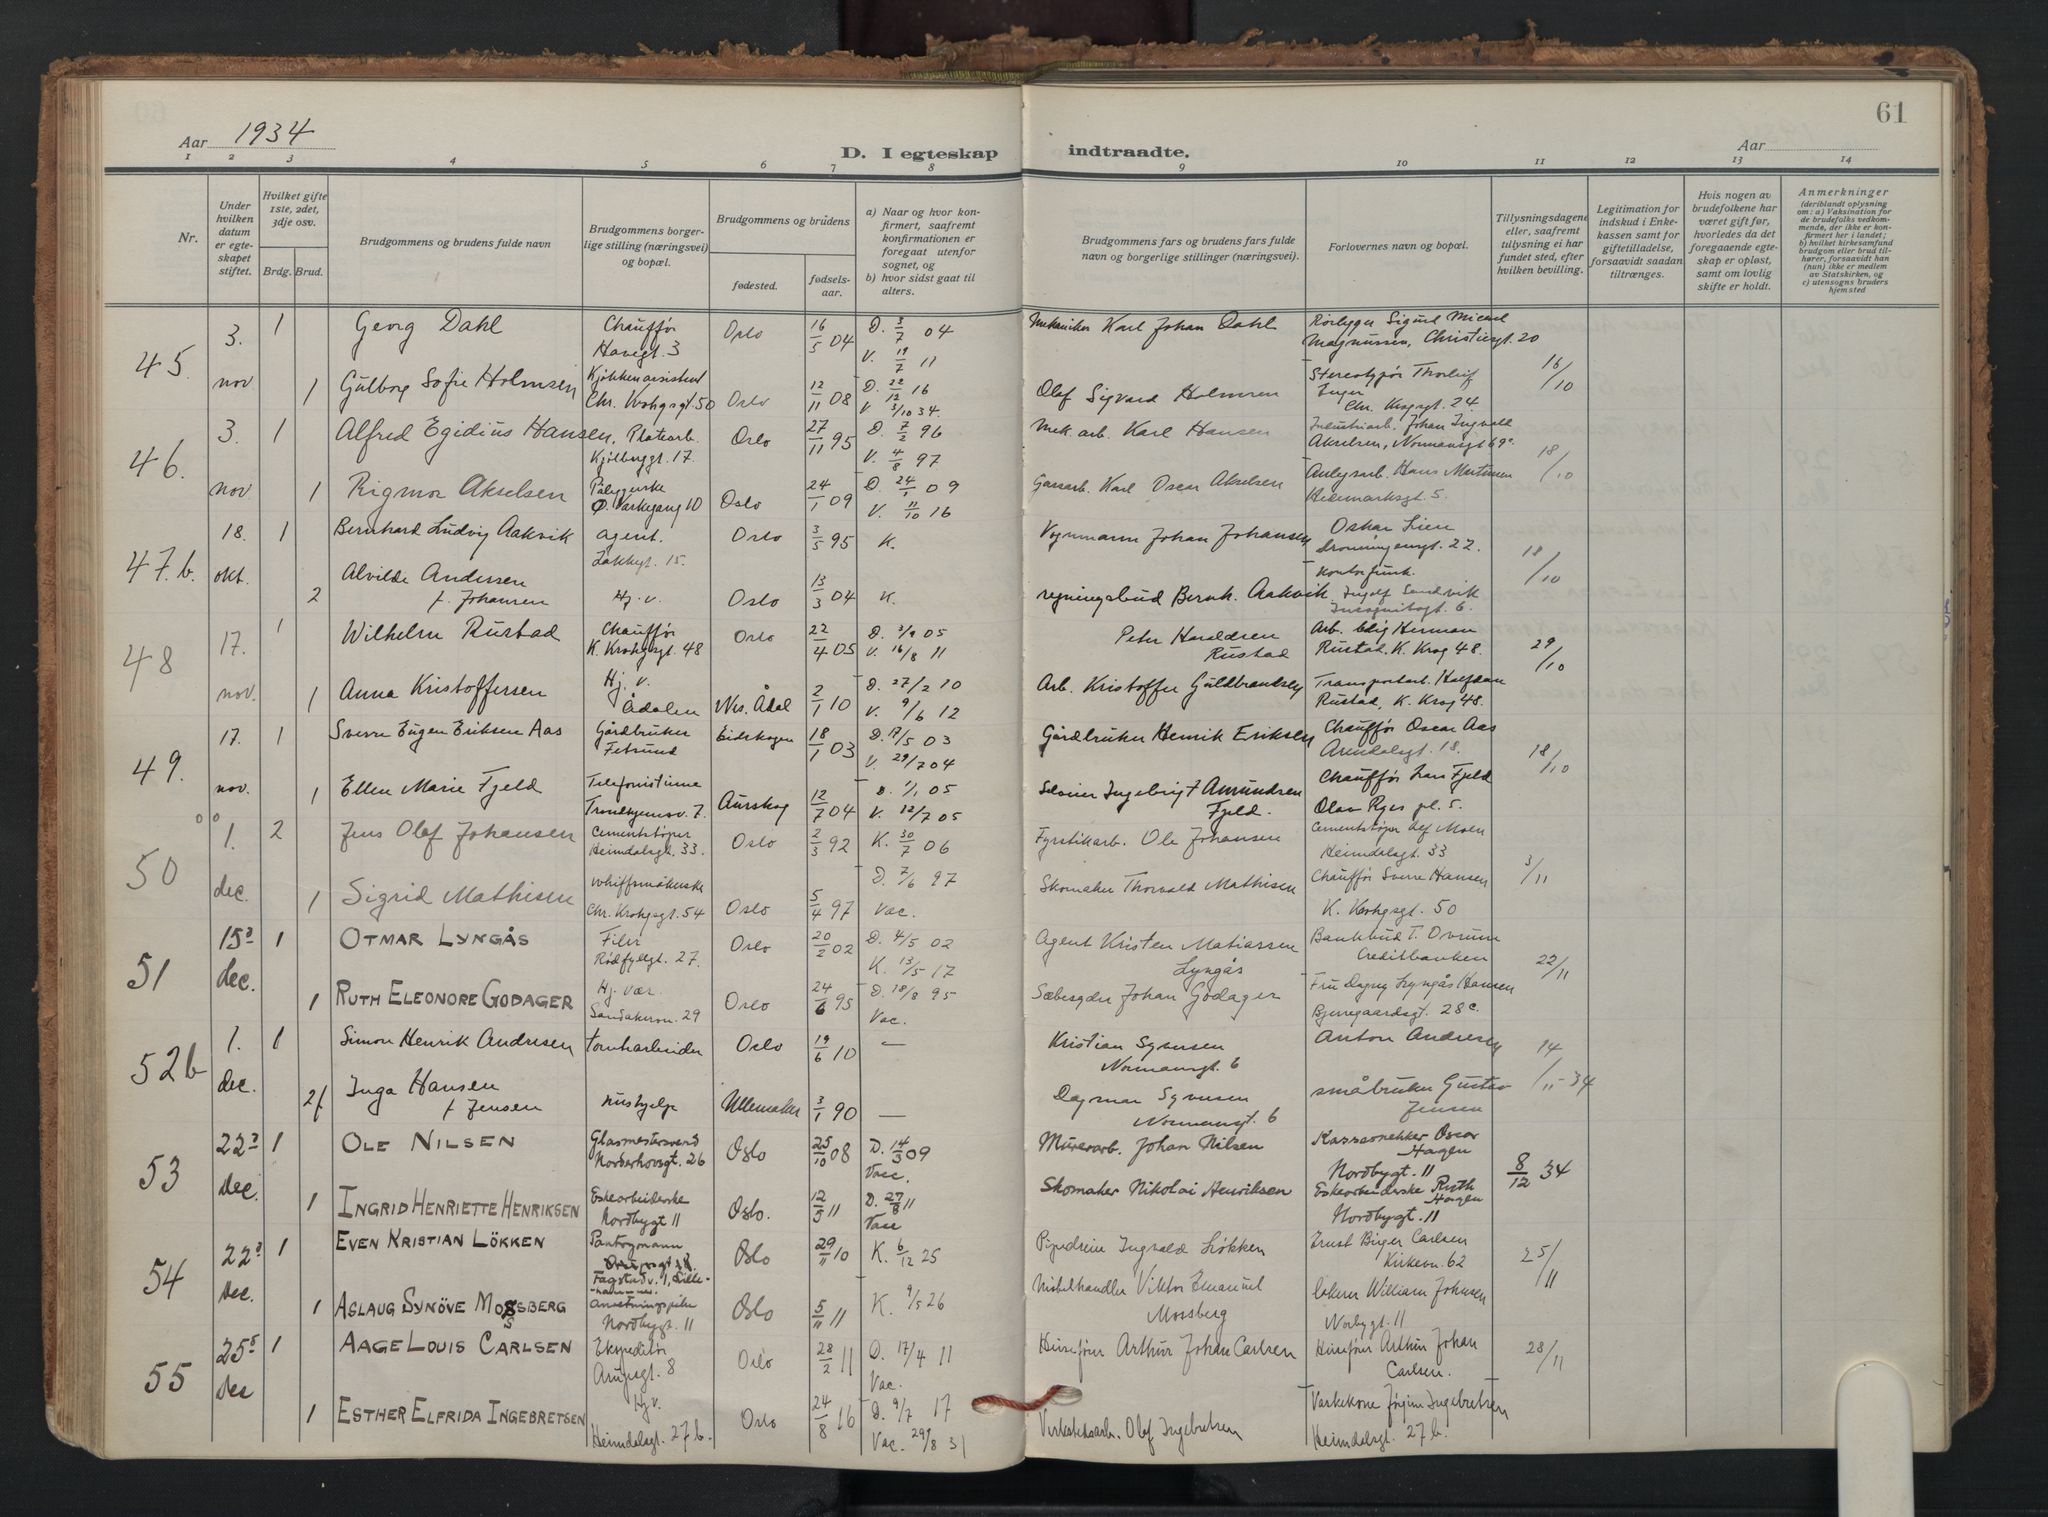 61
Aar 1934
D. I egteskap indtraadte.
Aar
1 2 3 4 5 6 7 8 9 10 11 12 13 14
Nr.
Under hvilken datum er egteskapet stiftet.
Hvilket gifte 1ste, 2det, 3dje osv.
Brdg. Brud.
Brudgommens og brudens fulde navn
Brudgommens borgerlige stilling (næringsvei) og bopæl.
Brudgommens og brudens
fødested.
fødselsaar.
a) Naar og hvor konfirmert, saafremt konfirmationen er foregaat utenfor sognet, og
b) hvor sidst gaat til alters.
Brudgommens fars og brudens fars fulde navn og borgerlige stillinger (næringsvei).
Forlovernes navn og bopæl.
Tillysningsdagene eller, saafremt tillysning ei har fundet sted, efter hvilken bevilling.
Legitimation for indskud i Enkekassen samt for giftetilladelse, forsaavidt saadan tiltrænges.
Hvis nogen av brudefolkene har været gift før, hvorledes da det foregaaende egteskap er opløst, samt om lovlig skifte er holdt.
Anmerkninger (deriblandt oplysning om: a) Vaksination for de brudefolks vedkommende, der ikke er konfirmert her i landet; b) hvilket kirkesamfund brudgom eller brud tilhører, forsaavidt han (hun) ikke er medlem av Statskirken, og c) utensogns bruders hjemsted
45. 3. nov 1 Georg Dahl Chauffør Havegt. 3 Oslo 16/5 04 D. 3/7 04 V. 19/7 11 Mekaniker Karl Johan Dahl Magnussen, Christiesgt. 20
1 Gulborg Sofie Holmsen Kjøkkenassistent Chr. Krohgsgt. 50 Oslo 12/11 08 D. 22/12 16 V. 3/10 34. Olaf Sigvard Holmsen Stereotypør Thorleif Chr. Krogsgt. 24. 16/10
46. 3. nov. 1 Alfred Egidius Hansen, Platearb. Kjølberggt. 17. Oslo 27/11 95 D. 7/2 96 V. 4/8 97 Mek. arb. Karl Hansen Industriarb. Johan Ingvald Akselsen, Normansgt 69c
1 Rigmor Akselsen Pålæggerske Oslo 24/1 09 D. 24/1 09 V. 11/10 16 Gassarb. Karl Oscar Akselsen Anlegsarb. Hans Martinsen Hedemarksgt. 5. 18/10
47.b. 18. okt. 1 Bernhard Ludvig Aakvik agent. Lakkgt. 15. Oslo 3/5 95 K. Vognmann Johan Johansen Oskar Lien Dronningensgt. 22.
2 Alvilde Andersen f. Johansen Hj. v. Oslo 13/3 04 K. regningsbud Bernh. Aakvik Kontorfunk. Ingolf Sandvik 18/10
48 17. nov. 1 Wilhelm Rustad Chauffør K. Krohgsgt. 48 Oslo 22/4 05 D. 3/9 05 V. 16/8 11 Peter Haraldsen Rustad Arb. Edig Herman Rustad, K. Krog 48.
1 Anna Kristoffersen Hj. v. Ådalen Nes. Ådal 2/1 10 D. 27/2 10 V. 9/6 12 Arb. Kristoffer Guldbrandsen Transportarb. Halfdan Rustad, K. Krog 48. 29/10
49. 17. nov. 1 Sverre Eugen Eriksen Aas Gårdbruker Fetsund Eidskogen 18/1 03 D. 17/5 03 V. 29/7 04 Gårdbruker Henrik Eriksen Chauffør Oscar Aas Arendalsgt. 18.
1 Ellen Marie Fjeld Telefonistinne Trondhjemsv. 7. Aurskog 12/7 04 D. 1/1 05 V. 12/7 05 Ingebrigt Amundsen Fjeld. Chauffør Lars Fjeld Olav Ryes pl. 5. 18/10
50 1. dec. 2 Jens Olaf Johansen Cementstøper Heimdalsgt. 33. Oslo 2/3 92 K. 30/7 06 Fyrstikarb. Ole Johansen Cementstøper Alf Moen Heimdalsgt. 33
1 Sigrid Mathisen Chr. Krohgsgt. 54 Oslo 5/4 97 D. 7/6 97 Vac. Skomaker Thorvald Mathisen Chauffør Sverre Hansen K. Krohgsgt. 50 3/11
51 15 dec. 1 OTMAR LYNGÅS Filer Rødfyllgt. 27. Oslo 20/2 02 D. 4/5 02 K. 13/5 17 Agent Kristen Matiassen Lyngås Bankbud T. Ovrum Creditbanken
1 RUTH ELEONORE GODAGER Hj. vær. Sandakervn. 29 Oslo 24/6 95 D. 18/8 95 Vac. Johan Godager Fru Dagny Lyngås Hansen Bjerregaardsgt. 28c. 22/11
52b 1. dec. 1 Simon Henrik Andresen tomtarbeider Oslo 19/6 10 — Kristian Syversen Normansgt. 6 Anton Andresen
2f Inga Hansen f Jensen hushjelp Ullensaker 3/1 90 — Dagmar Syversen Normansgt. 6 småbruker Gustav Jensen 14/11-34
53 22 dec. 1 OLE NILSEN Glasmestersvend Norderhovsgt. 26 Oslo 25/10 08 D. 14/3 09 Vacc. Murerarb. Johan Nilsen Kassasnekker Oscar Hagen Nordbygt. 11
1 INGRID HENRIETTE HENRIKSEN Eskearbeiderske Nordbygt 11 Oslo. 12/5 11 D. 27/8 11 Skomaker Nikolai Henriksen Eskearbeiderske Ruth Hagen Nordbygt. 11 8/12 34
54 22 Dec. 1 EVEN KRISTIAN LÖKKEN Fagstadv. 1, Lillehammer. Oslo 29/11 10 K. 6/12 25 Ingvald Løkken Ernst Birger Carlsen Kirkevn. 62
1 ASLAUG SYNÖVE MOSSBERG Nordbygt. 11 Oslo 5/11 11 K. 9/5 26 Møbelhandler Viktor Emanuel Mossberg William Johnsen Norbygt. 11 25/11
55 25 Des 1 AAGE LOUIS CARLSEN Ekspeditør Arupsgt. 8 Oslo 28/2 11 D. 17/4 11 Vac. Heisefører Arthur Johan Carlsen Heisefører Arthur Johan Carlsen.
1 ESTHER ELFRIDA INGEBRETSEN Hj.v. Heimdalsgt. 27b. Oslo 24/8 16 D. 9/7 17 Vac. 29/8 31 Verkstedsarb. Olaf Ingebretsen Vaskekone Jørgine Ingebretsen Heimdalsgt. 27b. 28/11